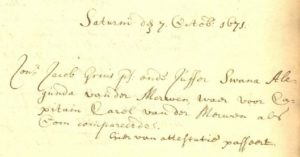 Saturni den 7 Octob. 1671.
Jacob Grius p onde Juffer Swana Ale-
gunda van der Merwen, waer voor Ca-
pitain Carel van der Merwen als
Oom compareerde.
hier van attestatie passeert.